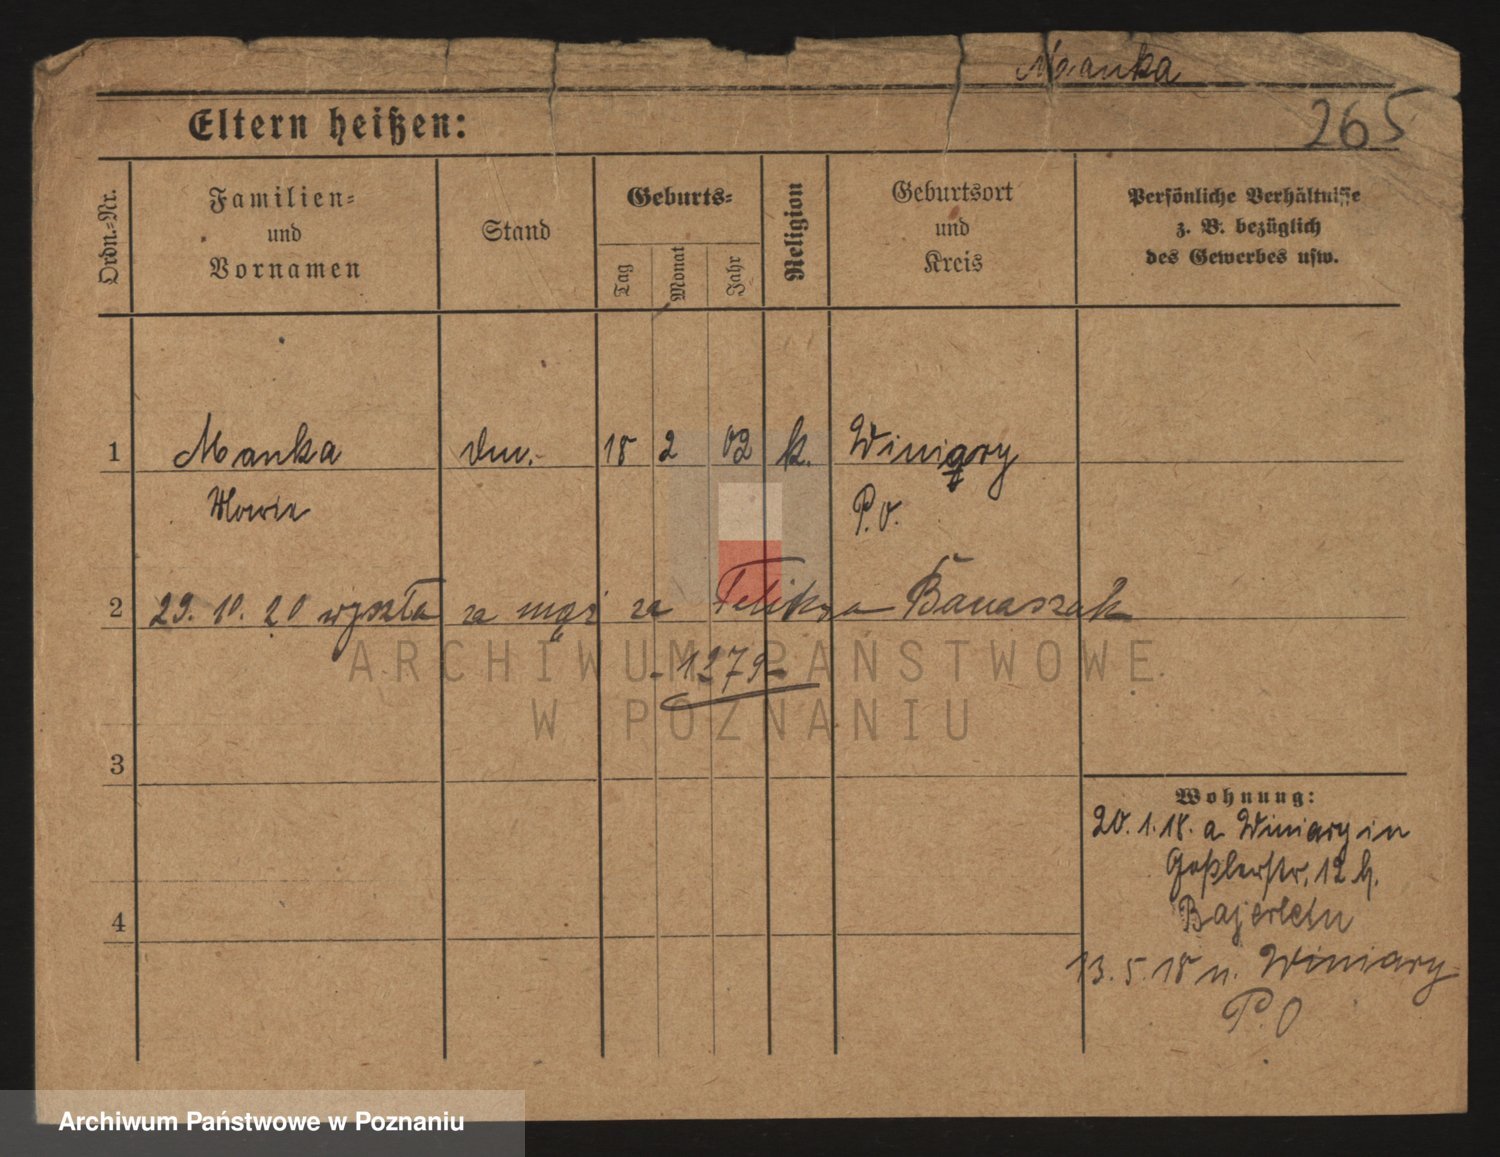 Manka
265
Eltern heißen:
Ordn.-Nr.
Familien-
und
Vornamen
Stand
Geburts-
Tag
Monat
Jahr
Religion
Geburtsort
und
Kreis
Persönliche Verhältnisse
z. B. bezüglich
des Gewerbes usw.
1 Manka 18 2 02 k. Winiary
P.O.
2 29. 10. 20 wyszła za mąż za Feliksa Banaszak
- 1279 -
ARCHIWUM PAŃSTWOWE
W POZNANIU
3
Wohnung:
20. 1. 18. a Winiary in
Goßlerstr. 12 b.
4
13. 5. 18 n. Winiary
P.O
Archiwum Państwowe w Poznaniu